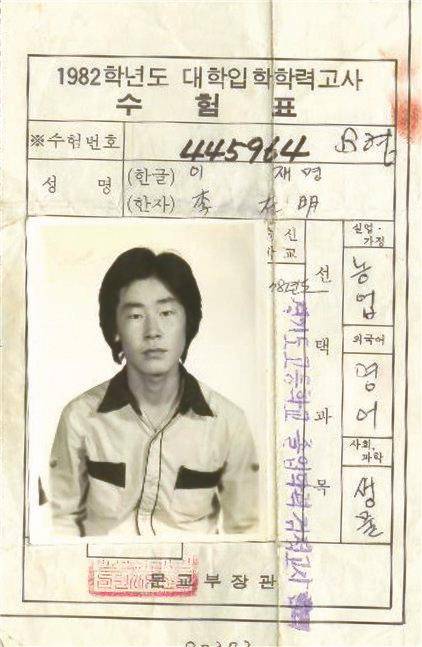 1982학년도 대학입학학력고사
수 험 표
※수험번호 445964 B형
성 명 (한글) 이 재명
(한자) 李 在 明
출신
학교
선택과목
실업·
가정
농업
외국어
영어
사회,
과학
생물
문교부장관